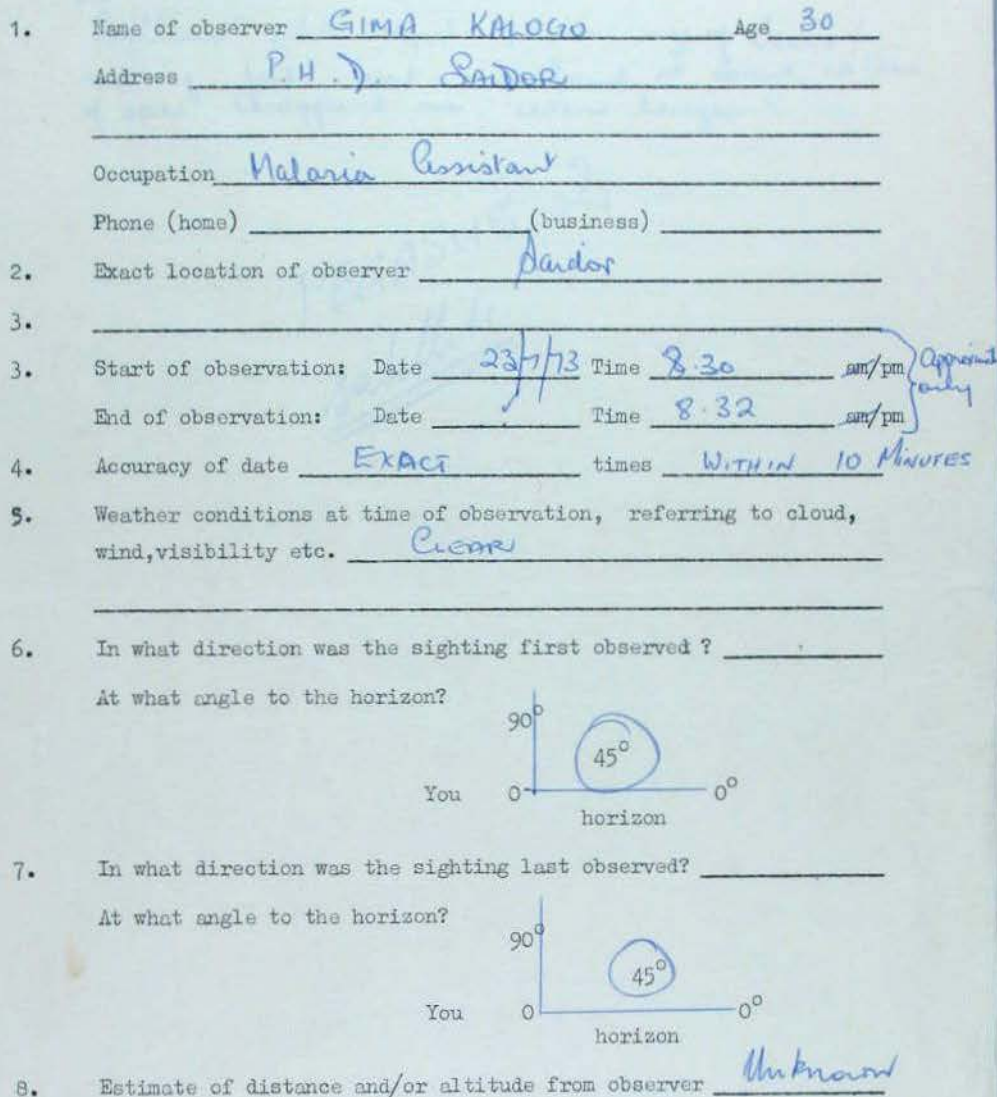 1. Name of observer GIMA KALOGO Age 30
Address P.H.D SAIDOR
Occupation Malaria Assistant
Phone (home) (business)
2. Exact location of observer Saidor
3.
3. Start of observation: Date 23/7/73 Time 8.30 am/pm Approximate
only
End of observation: Date Time 8.32 am/pm
4. Accuracy of date EXACT times WITHIN 10 MINUTES
5. Weather conditions at time of observation, referring to cloud,
wind,visibility etc. CLEAR
6. In what direction was the sighting first observed ?
At what angle to the horizon?
90°
45°
You 0 0°
horizon
7. In what direction was the sighting last observed?
At what angle to the horizon?
90°
45°
You 0 0°
horizon
8. Estimate of distance and/or altitude from observer Unknown